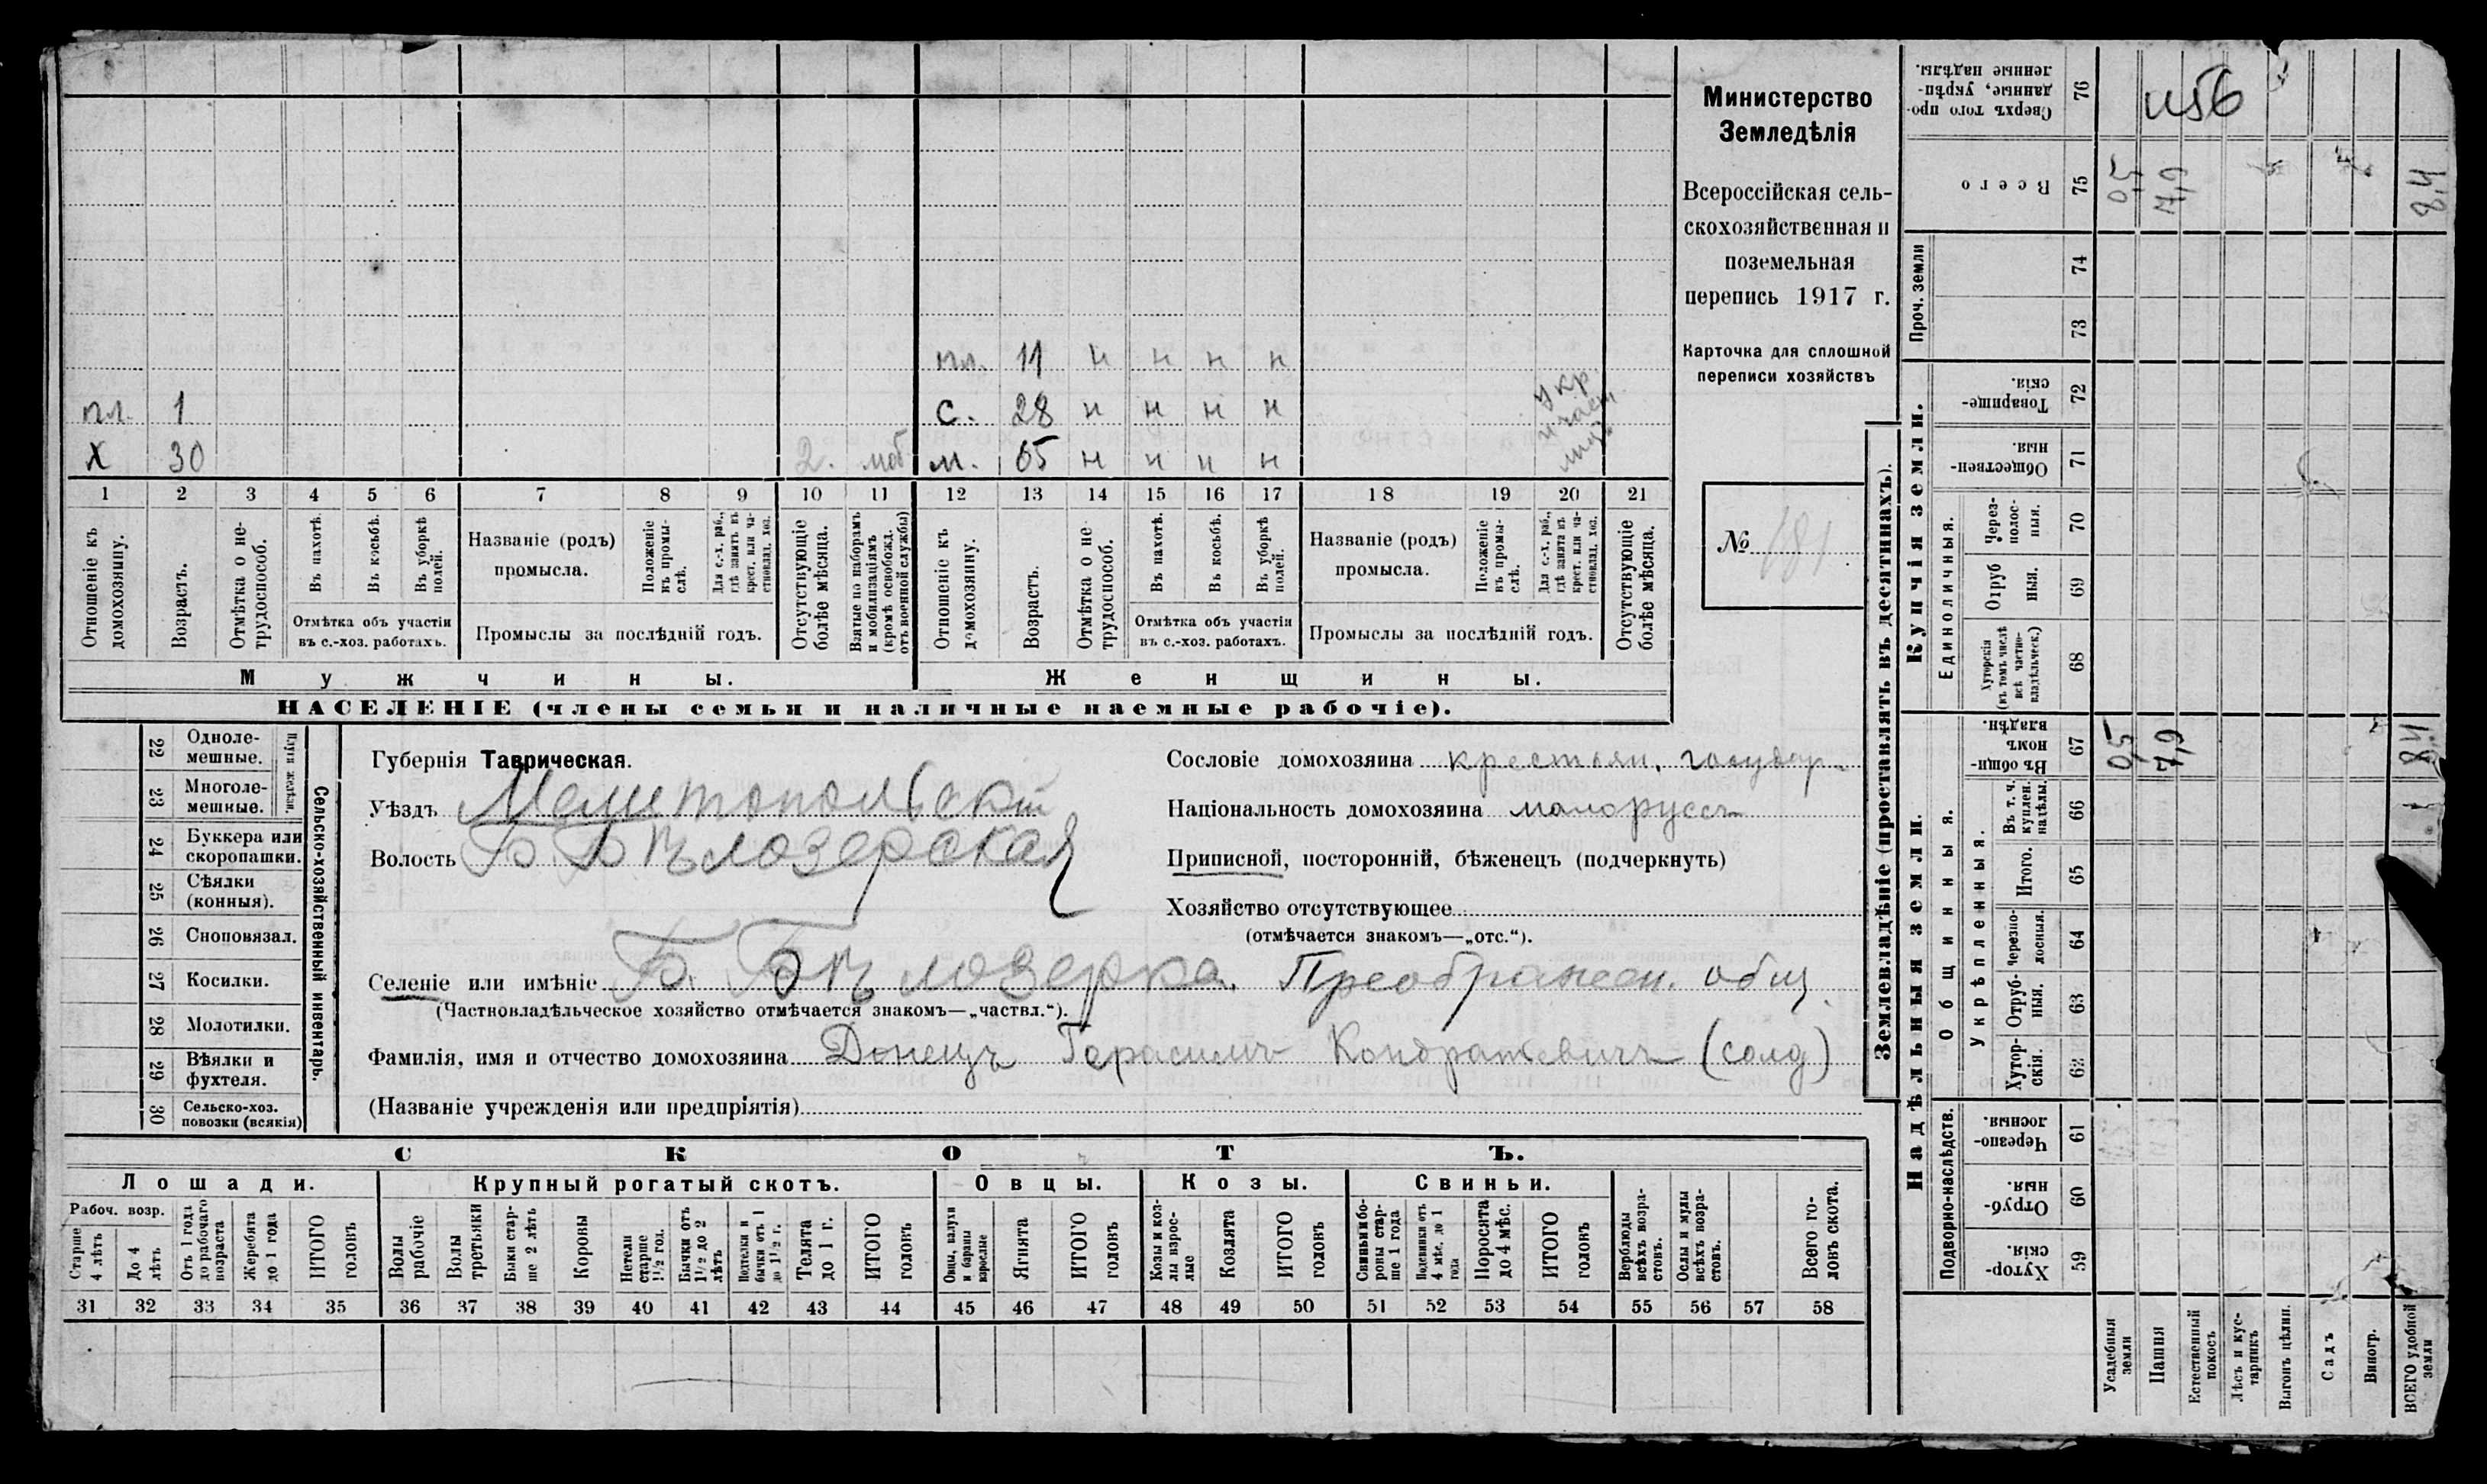 пл. 11 н н н н
пл. 1 с. 28 н н н н
х 30 2. моб м. 65 н н н н
1 2 3 4 5 6 7 8 9 10 11 12 13 14 15 16 17 18 19 20 21
Отношеніе къ домохозяину.
Возрастъ.
Отмѣтка о не-
трудоспособ.
Въ пахотѣ.
Въ косьбѣ.
Въ уборкѣ полей.
Отмѣтка объ участіи
въ с.-хоз. работахъ.
Названіе (родъ)
промысла.
Положеніе
въ промы-
слѣ.
Для с.-х. раб.,
гдѣ занятъ въ
крест. или ча-
стновлад. хоз.
Промыслы за послѣдній годъ.
Отсутствующіе
болѣе мѣсяца.
Взятые по наборамъ
и мобилизаціямъ
(кромѣ освобожд.
отъ военной службы)
Отношеніе къ
домохозяину.
Возрастъ.
Отмѣтка о не
трудоспособ.
Въ пахотѣ.
Въ косьбѣ.
Въ уборкѣ
полей.
Отмѣтка объ участіи
въ с.-хоз. работахъ.
Названіе (родъ)
промысла.
Положеніе
въ промы-
слѣ.
Для с.-х. раб.,
гдѣ занята въ
крест. или ча-
стновлад. хоз.
Промыслы за послѣдній годъ.
Отсутствующіе
болѣе мѣсяца.
Мужчины.
Женщины.
НАСЕЛЕНІЕ (члены семьи и наличные наемные рабочіе).
Министерство
Земледѣлія
Всероссійская сель-
скохозяйственная и
поземельная
перепись 1917 г.
Карточка для сплошной
переписи хозяйствъ
№ 181
22 Одноле-
мешные.
23 Многоле-
мешные.
Плуги желѣзн.
24 Буккера или
скоропашки.
25 Сѣялки
(конныя).
26 Сноповязал.
27 Косилки.
28 Молотилки.
29 Вѣялки и
фухтеля.
30 Сельско-хоз.
повозки (всякія)
Сельско-хозяйственный инвентарь.
Губернія Таврическая.
Уѣздъ Мелитопольскій
Волость Б. Бѣлозерская
Селеніе или имѣніе Б. Бѣлозерка. Преображен. общ.
(Частновладѣльческое хозяйство отмѣчается знакомъ—„частвл.“).
Фамилія, имя и отчество домохозяина Донецъ Герасимъ Кондратьевичъ (солд)
(Названіе учрежденія или предпріятія)
Сословіе домохозяина крестьян. государ.
Національность домохозяина малоруссъ
Приписной, посторонній, бѣженецъ (подчеркнуть)
Хозяйство отсутствующее
(отмѣчается знакомъ—„отс.“).
СКОТЪ.
Лошади. Крупный рогатый скотъ. Овцы. Козы. Свиньи.
Рабоч. возр.
Старше
4 лѣтъ
До 4
лѣтъ
Отъ 1 года
до рабочаго
возраста
Жеребята
до 1 года
ИТОГО
головъ
Волы
рабочіе
Волы
третьяки
Быки стар-
ше 2 лѣтъ
Коровы
Нетели
старше
1½ год.
Бычки отъ
1½ до 2
лѣтъ
Подтелки и
бычки отъ 1
до 1½ г.
Телята
до 1 г.
ИТОГО
головъ
Овцы, валухи
и бараны
взрослые
Ягнята
ИТОГО
головъ
Козы и коз-
лы взрос-
лые
Козлята
ИТОГО
головъ
Свиньи бо-
ровы стар-
ше 1 года
Подсвинки отъ
4 мѣс. до 1
года
Поросята
до 4 мѣс.
ИТОГО
головъ
Верблюды
всѣхъ возра-
стовъ.
Ослы и мулы
всѣхъ возра-
стовъ.
Всего го-
ловъ скота.
31 32 33 34 35 36 37 38 39 40 41 42 43 44 45 46 47 48 49 50 51 52 53 54 55 56 57 58
Землевладѣніе (проставлять въ десятинахъ).
Надѣльныя земли.
Купчія земли.
Проч. земли
Подворно-наслѣдств.
Общинныя.
Укрѣпленныя.
Единоличныя.
Хутор-
скія. 59
Отруб-
ныя. 60
Черезпо-
лосныя. 61
Хутор-
скія. 62
Отруб-
ныя. 63
Черезпо-
лосныя. 64
Итого. 65
Въ т. ч.
куплен.
надѣлы. 66
Въ общи-
номъ
владѣн. 67 0,5 7,9 8,4
Хуторскія
(въ томъ числѣ
всѣ частно-
владѣльческ.) 68
Отруб
ныя. 69
Через-
полос-
ныя. 70
Обществен-
ныя 71
Товарище-
скія. 72
73
74
Всего 75 0,5 7,9 8,4
Сверхъ того про-
данные, укрѣп-
ленные надѣлы. 76
Усадебныя
земли
Пашня
Естественный
покосъ
Лѣсъ и кус-
тарникъ
Выгонъ цѣлин.
Садъ
Виногр.
ВСЕГО удобной
земли